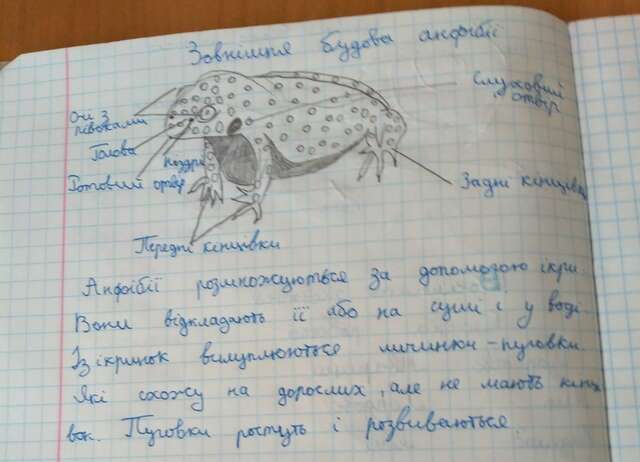 Зовнішня будова амфібії
Слуховий
отвір
Очі з
півоками
Голова
ніздрі
Ротовий отвір
Задні кінцівки
Передні кінцівки
Амфібії розмножуються за допомогою ікри.
Вони відкладають її або на суші і у воді.
Із ікринок вилуплюються личинки-пуговки.
Які схожу на дорослих, але не мають кінці
вок. Пуговки ростуть і розвиваються.